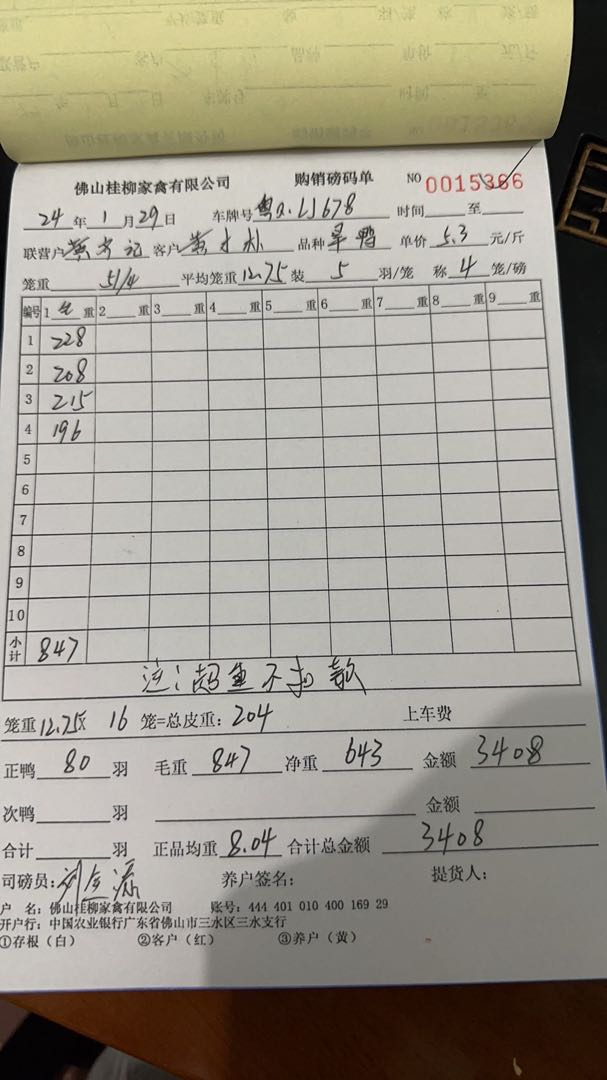 佛山桂柳家禽有限公司 购销磅码单 NO 0015366
24 年 1 月 29 日 车牌号 粤Q.LJ678 时间 至
联营户 客户 品种 旱鸭 单价 5.3 元/斤
笼重 51/4 平均笼重 12.75 装 5 羽/笼 称 4 笼/磅
编号 1 重 2 重 3 重 4 重 5 重 6 重 7 重 8 重 9 重
1 228
2 208
3 215
4 196
5
6
7
8
9
10
小计 847
注:超重不扣款
笼重 12.75X 16 笼=总皮重: 204 上车费
正鸭 80 羽 毛重 847 净重 643 金额 3408
次鸭 羽 金额
合计 羽 正品均重 8.04 合计总金额 3408
司磅员: 养户签名: 提货人:
户 名: 佛山桂柳家禽有限公司 账号: 444 401 010 400 169 29
开户行: 中国农业银行广东省佛山市三水区三水支行
①存根(白) ②客户(红) ③养户(黄)